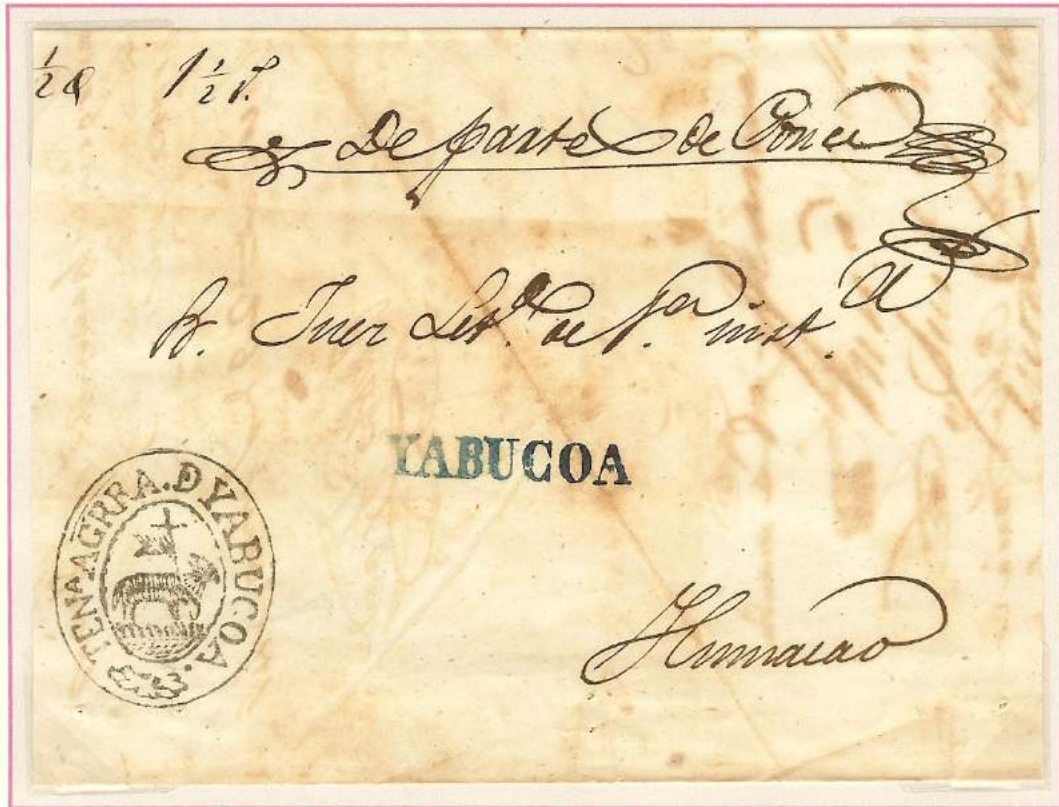 ½ a 1½ T.
De parte de Ponce
Sr. Juez Let.º de 1.ª inst.ª
YABUCOA
TENª AGRRA. D YABUCOA.
Humacao